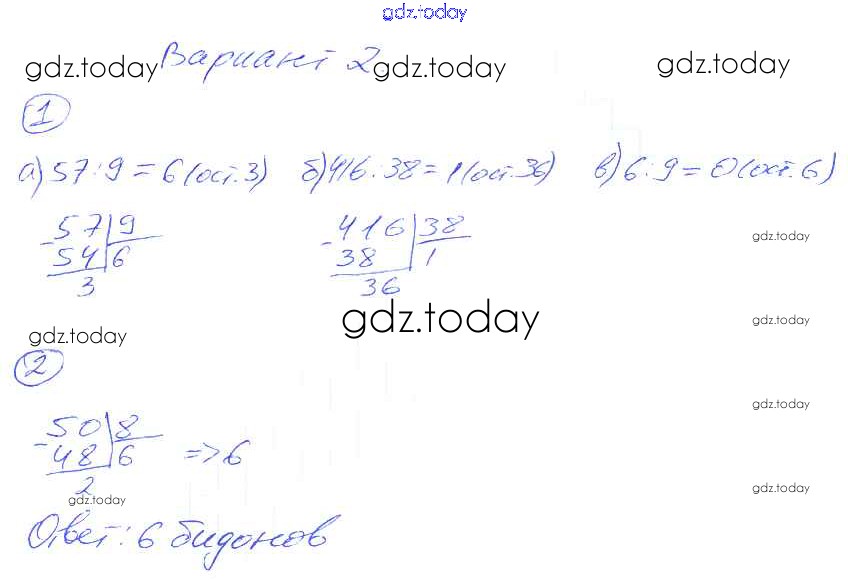 gdz.today
gdz.today Вариант 2 gdz.today gdz.today
1
а) 57:9=6(ост.3) б) 416:38=1(ост.36) в) 6:9=0(ост.6)
-57|9 -416|38 gdz.today
54|6 38|1
3 36
gdz.today gdz.today gdz.today
2
gdz.today
-50|8
48|6 =>6
2 gdz.today
gdz.today
Ответ: 6 бидонов